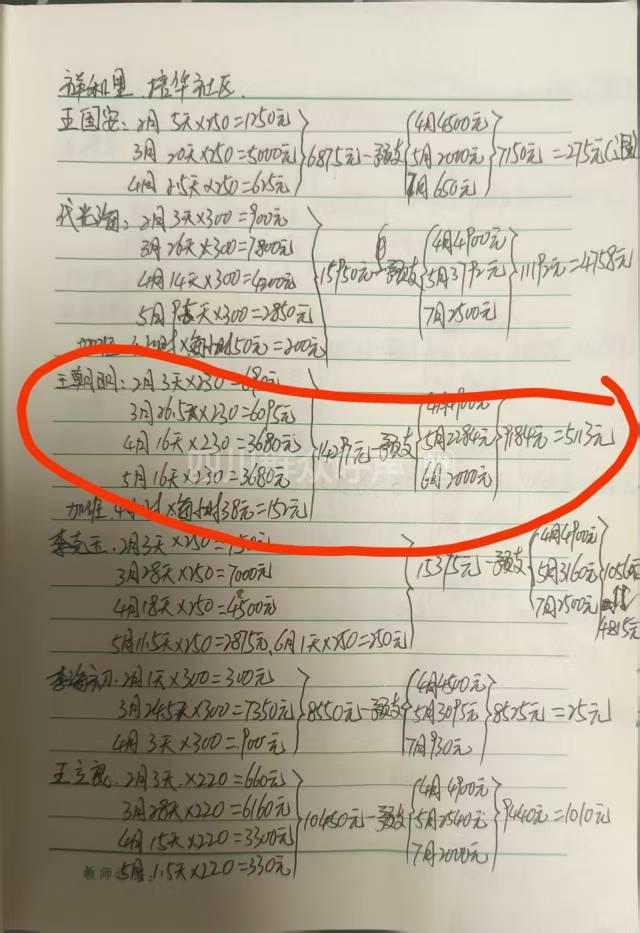 祥和里 培华社区.
王国安: 2月 5天×250=1250元
3月 20天×250=5000元 6875元-预支 4月4500元 5月2000元 7月650元 7150元=275元
4月 2.5天×250=625元
代 2月 3天×300=900元
3月 26天×300=7800元
4月 14天×300=4200元 15950元-预支 4月4900元 5月3792元 7月2500元 11192元=4758元
5月 9.5天×300=2850元
加班 4小时×每小时50元=200元
王朝明: 2月 3天×230=690元
3月 26.5天×230=6095元
4月 16天×230=3680元 14297元-预支 4月4900元 5月2284元 6月2000元 9184元=5113元
5月 16天×230=3680元
加班 4小时×每小时38元=152元
李克玉. 2月3天×250=750元
3月28天×250=7000元 15375元-预支 4月4900元 5月3160元 7月2500元 10560元 4815元
4月18天×250=4500元
5月11.5天×250=2875元, 6月1天×250=250元
李海 2月1天×300=300元
3月24.5天×300=7350元 8550元-预支 4月4500元 5月3095元 7月930元 8525元=25元
4月 3天×300=900元
王立 2月3天.×220=660元
3月28天×220=6160元
4月15天×220=3300元 10450元-预支 4月4900元 5月2540元 7月2000元 9440元=1010元
教师 5月.1.5天×220=330元